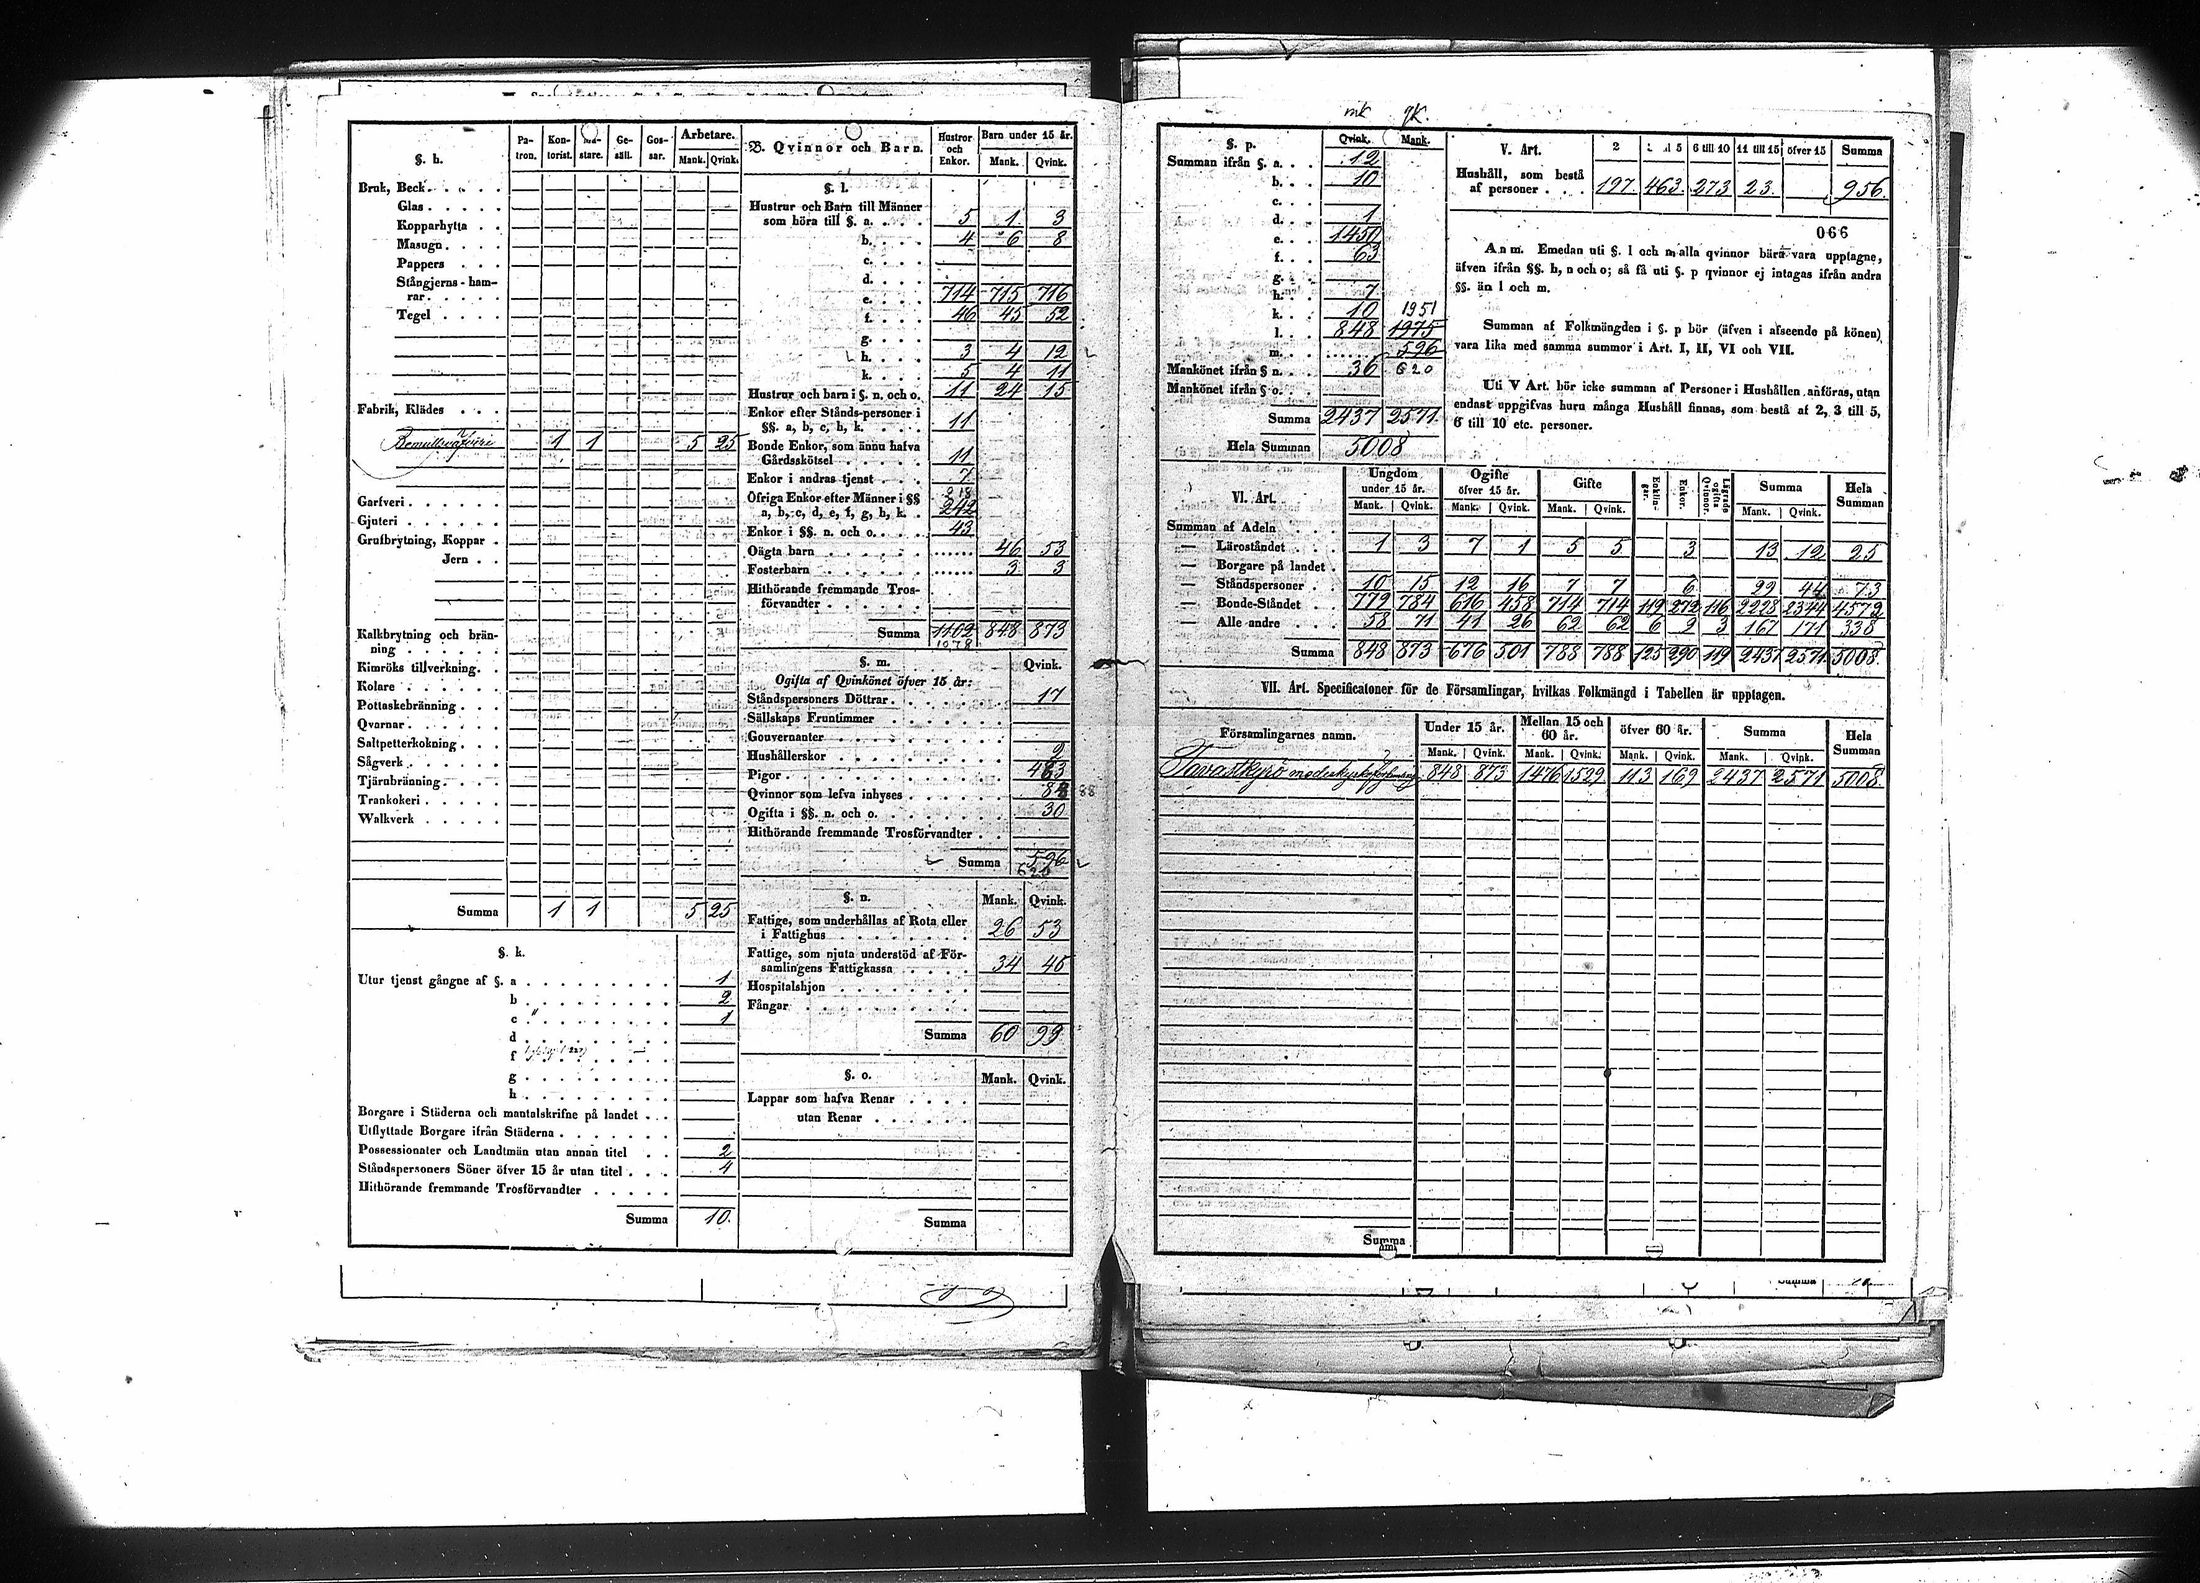 §. h. Pa- Kon- Mä- Ge- Gos- Arbetare.
tron. torist. stare. säll. sar. Mank. Qvink.
Bruk, Beck
Glas
Kopparhytta
Masugn
Pappers
Stångjerns-ham-
rar
Tegel
Fabrik, Klädes
1 1 5 25
Garfveri
Gjuteri
Grufbrytning, Koppar
Jern
Kalkbrytning och brän-
ning
Kimröks tillverkning
Kolare
Pottaskebränning
Qvarnar
Saltpetterkokning
Sågverk
Tjärubränning
Trankokeri
Walkverk
Summa 1 1 5 25
§. k.
Utur tjenst gångne af §. a 1
b 2
c " 1
d
f
g
h
Borgare i Städerna och mantalskrifne på landet
Utflyttade Borgare ifrån Städerna
Possessionater och Landtmän utan annan titel 2
Ståndspersoners Söner öfver 15 år utan titel 4
Hithörande fremmande Trosförvandter
Summa 10.
B. Qvinnor och Barn. Hustror och Enkor. Barn under 15 år.
Mank. Qvink.
§. l.
Hustrur och Barn till Männer
som höra till §. a. 5 1 3
b. 4 6 8
c.
d.
e. 714 715 716
f. 46 45 52
g.
h. 3 4 12
k. 5 4 11
Hustrur och barn i §. n. och o. 11 24 15
Enkor efter Stånds-personer i
§§. a, b, c, h, k. 11
Bonde Enkor, som ännu hafva
Gårdsskötsel 11
Enkor i andras tjenst 7
Öfriga Enkor efter Männer i §§ 218
a, b, c, d, e, f, g, h, k. 242
Enkor i §§. n. och o. 43
Oägta barn 46 53
Fosterbarn 3 3
Hithörande fremmande Tros-
förvandter
Summa 1102 848 873
1078
§. m. Qvink.
Ogifta af Qvinkönet öfver 15 år:
Ståndspersoners Döttrar 17
Sällskaps Fruntimmer
Gouvernanter
Hushållerskor 2
Pigor 463
Qvinnor som lefva inhyses 88
Ogifta i §§. n. och o. 30
Hithörande fremmande Trosförvandter
Summa 596
620
§. n. Mank. Qvink.
Fattige, som underhållas af Rota eller
i Fattighus 26 53
Fattige, som njuta understöd af För-
samlingens Fattigkassa 34 46
Hospitalshjon
Fångar
Summa 60 99
§. o. Mank. Qvink.
Lappar som hafva Renar
utan Renar
Summa
mk qk.
§. p. Qvink. Mank.
Summan ifrån §. a. 12
b. 10
c.
d. 1
e. 1450
f. 63
g.
h. 7
k. 10 1951
l. 848 1975
m. 596
Mankönet ifrån § n. 36 620
Mankönet ifrån § o.
Summa 2437 2571
Hela Summan 5008
V. Art. 2 6 till 10 11 till 15 öfver 15 Summa
Hushåll, som bestå
af personer 197 463 273 23 956.
066
Anm. Emedan uti §. l och m alla qvinnor böra vara upptagne,
äfven ifrån §§. h, n och o; så få uti §. p qvinnor ej intagas ifrån andra
§§. än l och m.
Summan af Folkmängden i §. p bör (äfven i afseende på könen)
vara lika med samma summor i Art. I, II, VI och VII.
Uti V Art. bör icke summan af Personer i Hushållen anföras, utan
endast uppgifvas huru många Hushåll finnas, som bestå af 2, 3 till 5,
6 till 10 etc. personer.
VI. Art. Ungdom under 15 år. Ogifte öfver 15 år. Gifte Enklin-gar. Enkor. Lägrade ogifta Qvinnor. Summa Hela Summan
Mank. Qvink. Mank. Qvink. Mank. Qvink. Mank. Qvink.
Summan af Adeln
— Läroståndet 1 3 7 1 5 5 3 13 12 25
— Borgare på landet
— Ståndspersoner 10 15 12 16 7 7 6 29 44 73
— Bonde-Ståndet 779 784 616 458 714 714 119 272 116 2228 2344 4572
— Alle andre 58 71 41 26 62 62 6 9 3 167 171 338
Summa 848 873 676 501 788 788 125 290 119 2437 2571 5008.
VII. Art. Specificatoner för de Församlingar, hvilkas Folkmängd i Tabellen är upptagen.
Församlingarnes namn. Under 15 år. Mellan 15 och 60 år. öfver 60 år. Summa Hela Summan
Mank. Qvink. Mank. Qvink. Mank. Qvink. Mank. Qvink.
Tavastkyrö moderkyrkoförsamling 848 873 1476 1529 113 169 2437 2571 5008.
Summa